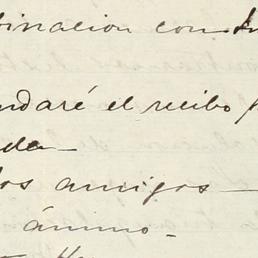 binacion con
ndaré el recibo
da—
los amigos—
ánimo-